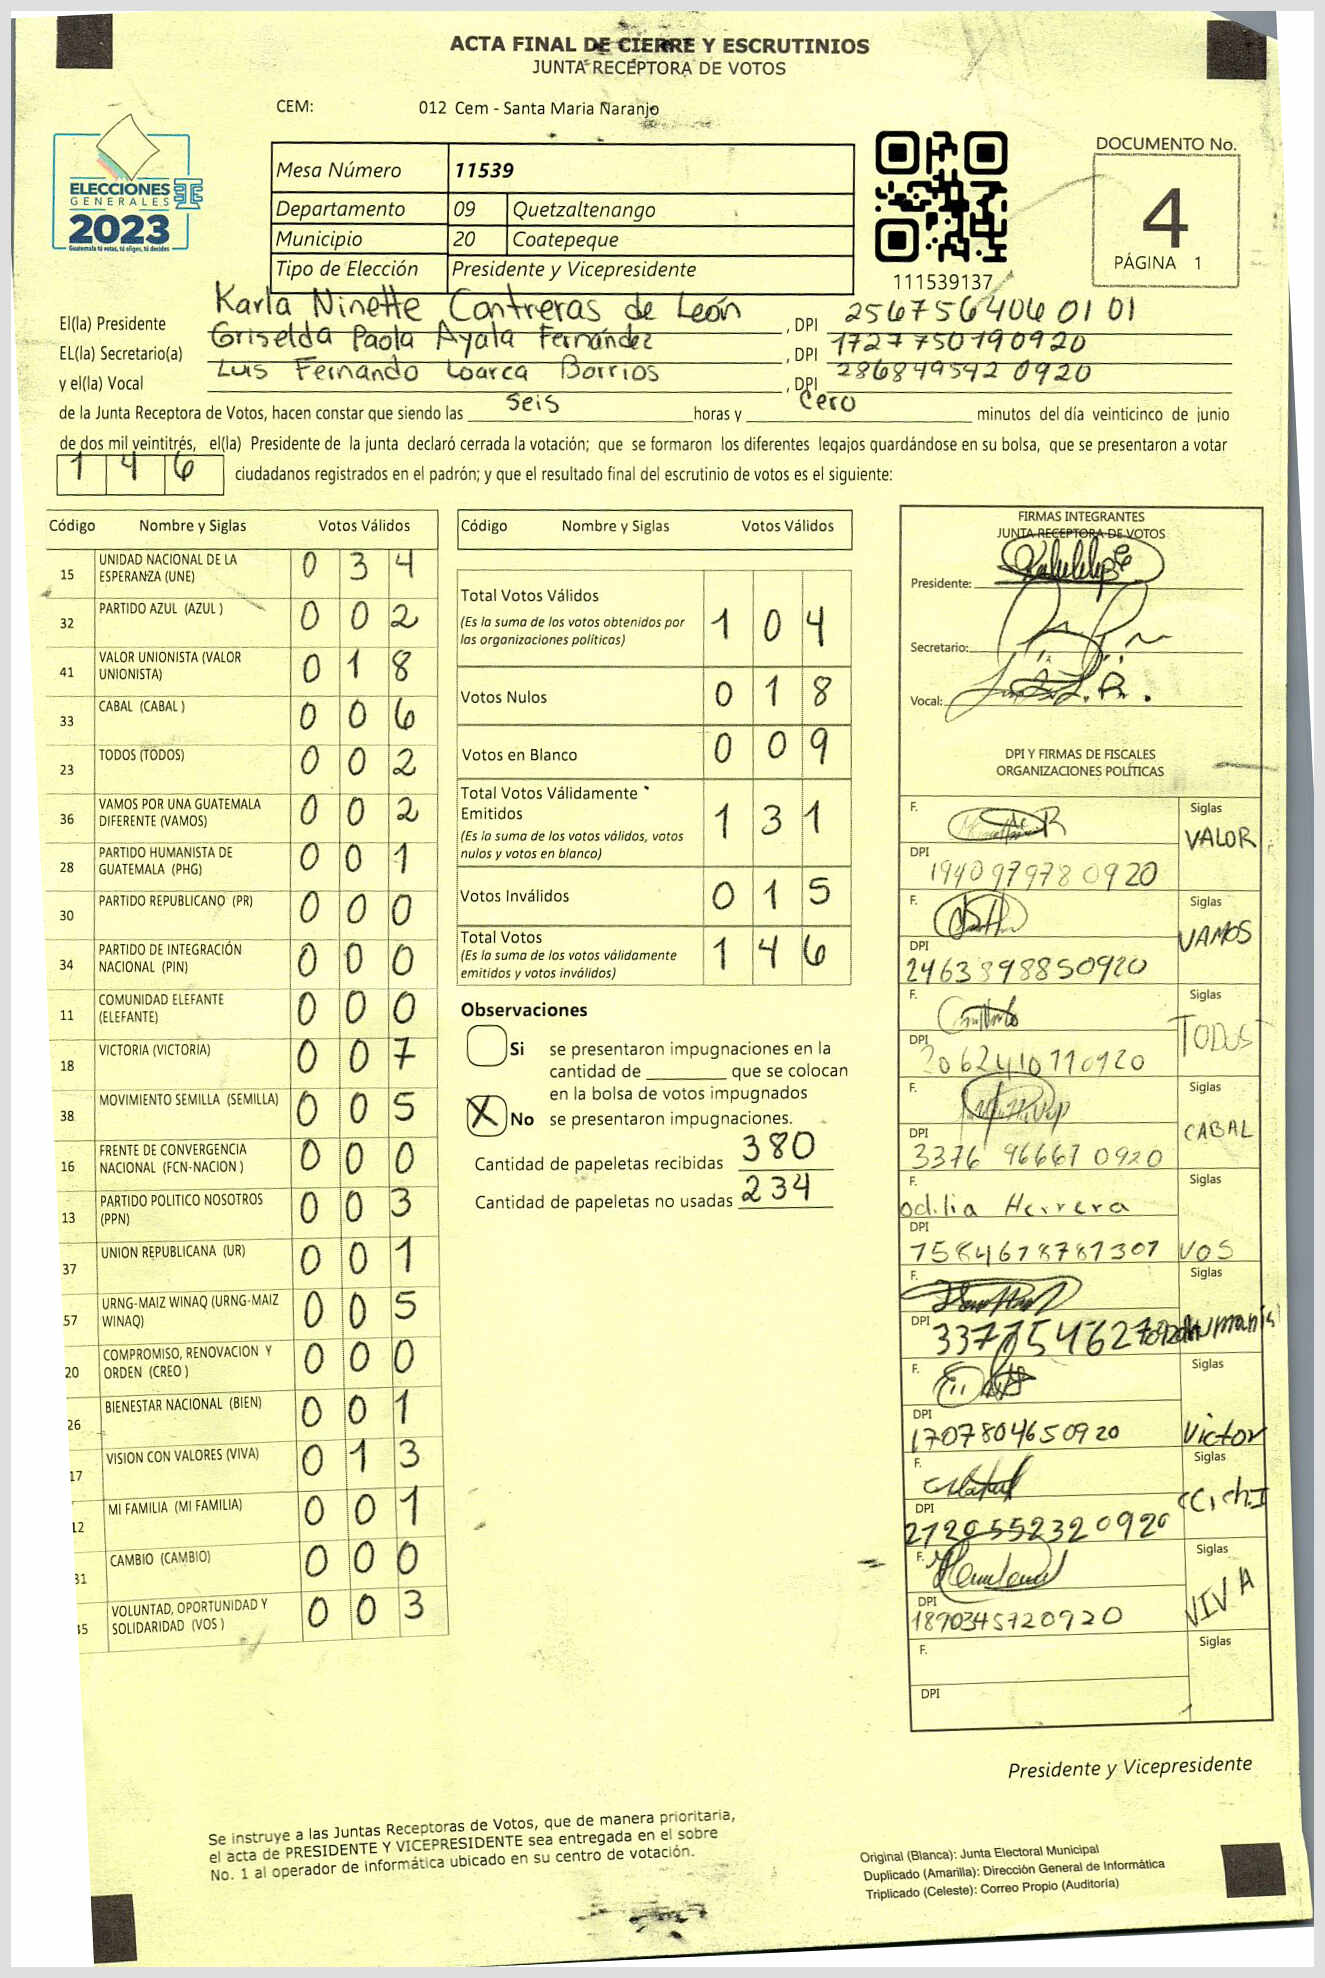 ACTA FINAL DE CIERRE Y ESCRUTINIOS
JUNTA RECEPTORA DE VOTOS
CEM: 012 Cem - Santa Maria Naranjo
ELECCIONES
GENERALES
2023
Guatemala tú votas, tú eliges, tú decides
Mesa Número 11539
Departamento 09 Quetzaltenango
Municipio 20 Coatepeque
Tipo de Elección Presidente y Vicepresidente
111539137
DOCUMENTO No.
4
PÁGINA 1
El(la) Presidente Karla Ninette Contreras de León , DPI 2567564060101
EL(la) Secretario(a) Griselda Paola Ayala Fernández , DPI 1727750190920
y el(la) Vocal Luis Fernando Loarca Barrios , DPI 2868495420920
de la Junta Receptora de Votos, hacen constar que siendo las seis horas y cero minutos del día veinticinco de junio
de dos mil veintitrés, el(la) Presidente de la junta declaró cerrada la votación; que se formaron los diferentes legajos guardándose en su bolsa, que se presentaron a votar
146 ciudadanos registrados en el padrón; y que el resultado final del escrutinio de votos es el siguiente:
Código Nombre y Siglas Votos Válidos
15 UNIDAD NACIONAL DE LA ESPERANZA (UNE) 0 3 4
32 PARTIDO AZUL (AZUL ) 0 0 2
41 VALOR UNIONISTA (VALOR UNIONISTA) 0 1 8
33 CABAL (CABAL ) 0 0 6
23 TODOS (TODOS) 0 0 2
36 VAMOS POR UNA GUATEMALA DIFERENTE (VAMOS) 0 0 2
28 PARTIDO HUMANISTA DE GUATEMALA (PHG) 0 0 1
30 PARTIDO REPUBLICANO (PR) 0 0 0
34 PARTIDO DE INTEGRACIÓN NACIONAL (PIN) 0 0 0
11 COMUNIDAD ELEFANTE (ELEFANTE) 0 0 0
18 VICTORIA (VICTORIA) 0 0 7
38 MOVIMIENTO SEMILLA (SEMILLA) 0 0 5
16 FRENTE DE CONVERGENCIA NACIONAL (FCN-NACION ) 0 0 0
13 PARTIDO POLITICO NOSOTROS (PPN) 0 0 3
37 UNION REPUBLICANA (UR) 0 0 1
57 URNG-MAIZ WINAQ (URNG-MAIZ WINAQ) 0 0 5
20 COMPROMISO, RENOVACION Y ORDEN (CREO ) 0 0 0
26 BIENESTAR NACIONAL (BIEN) 0 0 1
17 VISION CON VALORES (VIVA) 0 1 3
12 MI FAMILIA (MI FAMILIA) 0 0 1
31 CAMBIO (CAMBIO) 0 0 0
45 VOLUNTAD, OPORTUNIDAD Y SOLIDARIDAD (VOS ) 0 0 3
Código Nombre y Siglas Votos Válidos
Total Votos Válidos 1 0 4
(Es la suma de los votos obtenidos por
las organizaciones políticas)
Votos Nulos 0 1 8
Votos en Blanco 0 0 9
Total Votos Válidamente
Emitidos 1 3 1
(Es la suma de los votos válidos, votos
nulos y votos en blanco)
Votos Inválidos 0 1 5
Total Votos 1 4 6
(Es la suma de los votos válidamente
emitidos y votos inválidos)
Observaciones
Si se presentaron impugnaciones en la
cantidad de ________ que se colocan
en la bolsa de votos impugnados
X No se presentaron impugnaciones.
Cantidad de papeletas recibidas 380
Cantidad de papeletas no usadas 234
FIRMAS INTEGRANTES
JUNTA RECEPTORA DE VOTOS
Presidente:
Secretario:
Vocal:
DPI Y FIRMAS DE FISCALES
ORGANIZACIONES POLÍTICAS
F. Siglas VALOR
DPI 1940979780920
F. Siglas VAMOS
DPI 2463898850920
F. Siglas TODOS
DPI 2062410770920
F. Siglas CABAL
DPI 3376966670920
F. odilia Herrera Siglas VOS
DPI 7584678781307
F. Siglas
DPI
F. Siglas Victor
DPI 1707804650920
F. Siglas
DPI 27205552320920
F. Siglas VIVA
DPI 1890345720920
F. Siglas
DPI
Presidente y Vicepresidente
Se instruye a las Juntas Receptoras de Votos, que de manera prioritaria,
el acta de PRESIDENTE Y VICEPRESIDENTE sea entregada en el sobre
No. 1 al operador de informática ubicado en su centro de votación.
Original (Blanca): Junta Electoral Municipal
Duplicado (Amarilla): Dirección General de Informática
Triplicado (Celeste): Correo Propio (Auditoría)